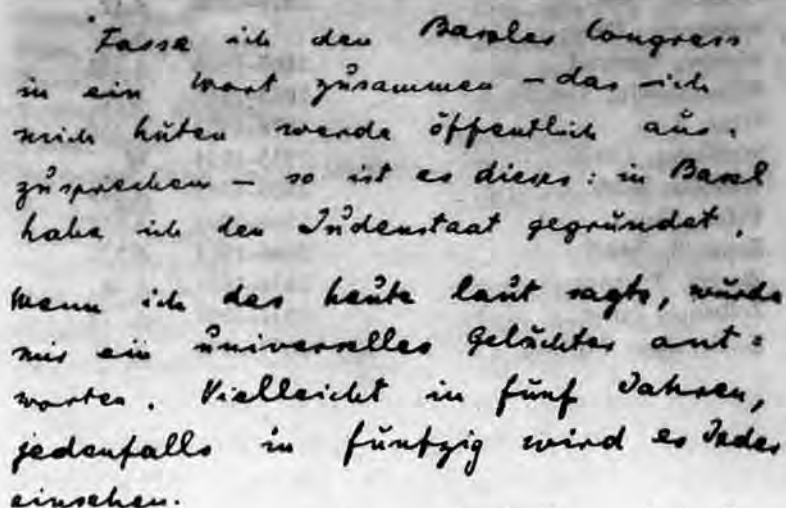 Fasse ich den Basler Congress
in ein Wort zusammen – das ich
mich hüten werde öffentlich aus-
zusprechen – so ist es dieses: in Basel
habe ich den Judenstaat gegründet.
Wenn ich das heute laut sagte, würde
mir ein universelles Gelächter ant=
worten. Vielleicht in fünf Jahren,
jedenfalls in fünfzig wird es Jeder
einsehen.